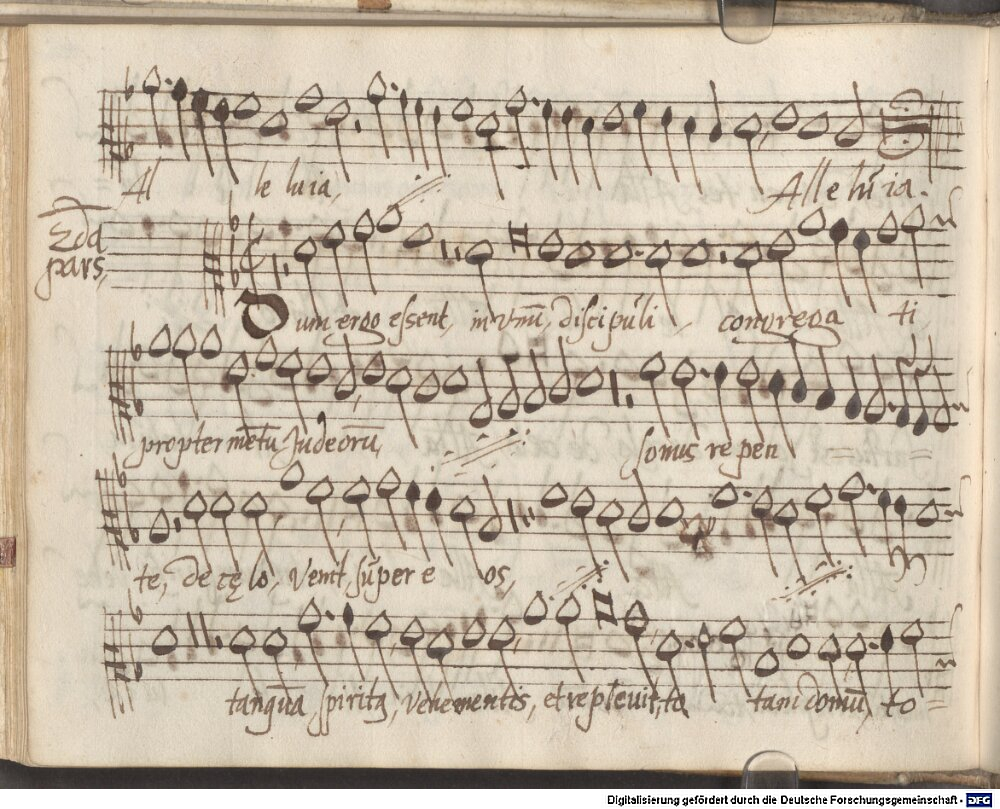 Al le luia, Alle lúia.
2da pars,
Dum ergo essent, in vnū, discipúli congrega ti
propter metū Judeorū, sonus repen
te, de cęlo, venit, súper e os,
tanq̄ua spiritq, vehementis, et repleuit, to tam domū, to
Digitalisierung gefördert durch die Deutsche Forschungsgemeinschaft - DFG